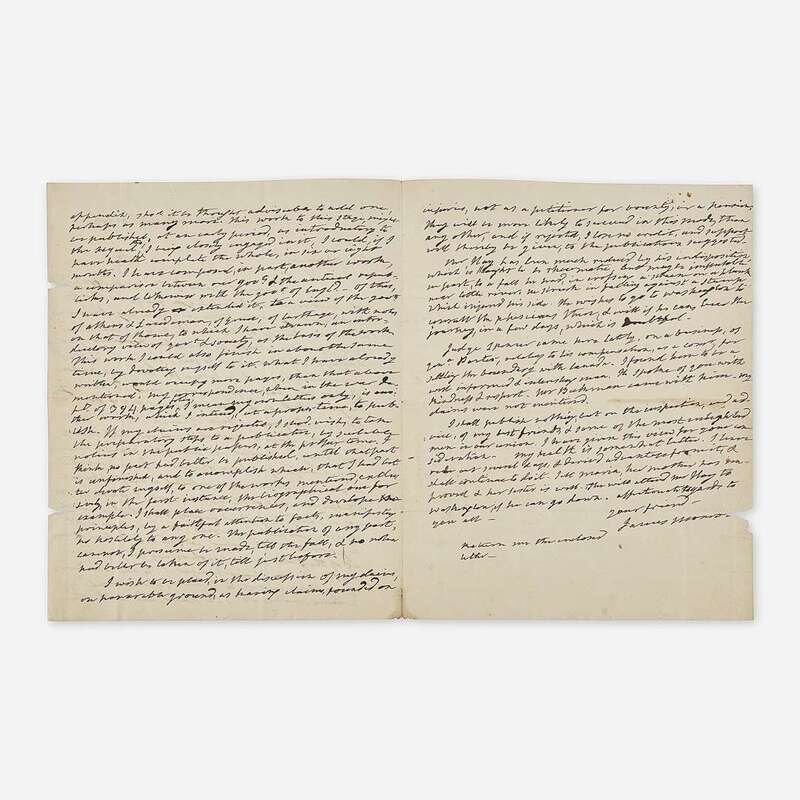 appendix, shod. it be thought advisable to add one,
perhaps as many more. This work to this stage, might
be published, at an early period, as introductory to
the sequel. If being closely engaged in it, I could, if I
have health complete the whole, in six or eight
months. I have composed, in part, another work,
a comparison between our govt. & the antient repub-
licks, and likewise with the govt. of Engld. Of this,
I have already extended it, to a view of the govt.
of Athens & Lacedemon, of & of Carthage, with notes
on that of Rome, to which I have drawn, an intro-
ductory view of govt. & society, as the basis of the work.
This work I could also finish in about the same
time, by devoting myself to it. what I have already
written, would occupy more pages, than that above
mentioned. My correspondence, when in the war
of 394 pages, I meaning our letters only, is
other work, which I intend, at a proper time, to pub-
lish. If my claims are rejected, I shod. wish, to take
the preparatory steps to a publication, by suitable
notices in the publick papers, at the proper time. I
think no part had better be published, until that part
is unfinished, and to accomplish which, that I had bet-
ter devote myself, to one of the works mentioned, exclu-
sively in the first instance, the biographical one for
example. I shall place occurrences, and develope the
principles, by a faithful attention to facts, manifesting
no hostility to any one. The publication of any part,
cannot, I presume be made, till the fall, & no notice
had better be taken of it, till just before.
I wish to be placed, in the discussion of my claims,
on honorable ground, as having claims, founded on
injuries, not as a petitioner for bounty, or a pension.
They will be more likely to succeed in this mode, than
any other, and if rejected, I lose no credit, and support
will thereby be given, to the publications suggested.
Mr Hay has been much reduced by his indisposition
which is thought to be rheumatic, but may be imputable
in part, to a fall he had, in crossing a stream on a plank
near both rivers, he struck in falling against a stump
which injured his side. He wishes to go to washington to
consult the physicians there, & will if he can bear the
journey, in a few days, which is doubtful.
Judge Spencer came here lately, on a business, of
Genl. Porter, relating to his compensation, as a comr. for
settling the boundary with Canada. I found him to be a
well informed & interesting man. He spoke of you with
kindness & respect. Mr Beekman came with him. my
claims were not mentioned.
I shall publish nothing, but on the inspection, and ad-
vice, of my best friends, & some of the most enlightened
men in our union. I have given this view for your con-
sideration. My health is somewhat better. I have
rode out several days, & derived advantage from it, &
shall continue to do it. Tell Maria, her mother has im-
proved & her sister is well. She will attend Mr Hay to
Washington if he can go down. affectionate regards to
you all—
your friend
James Monroe
Return me the enclosed
letter—